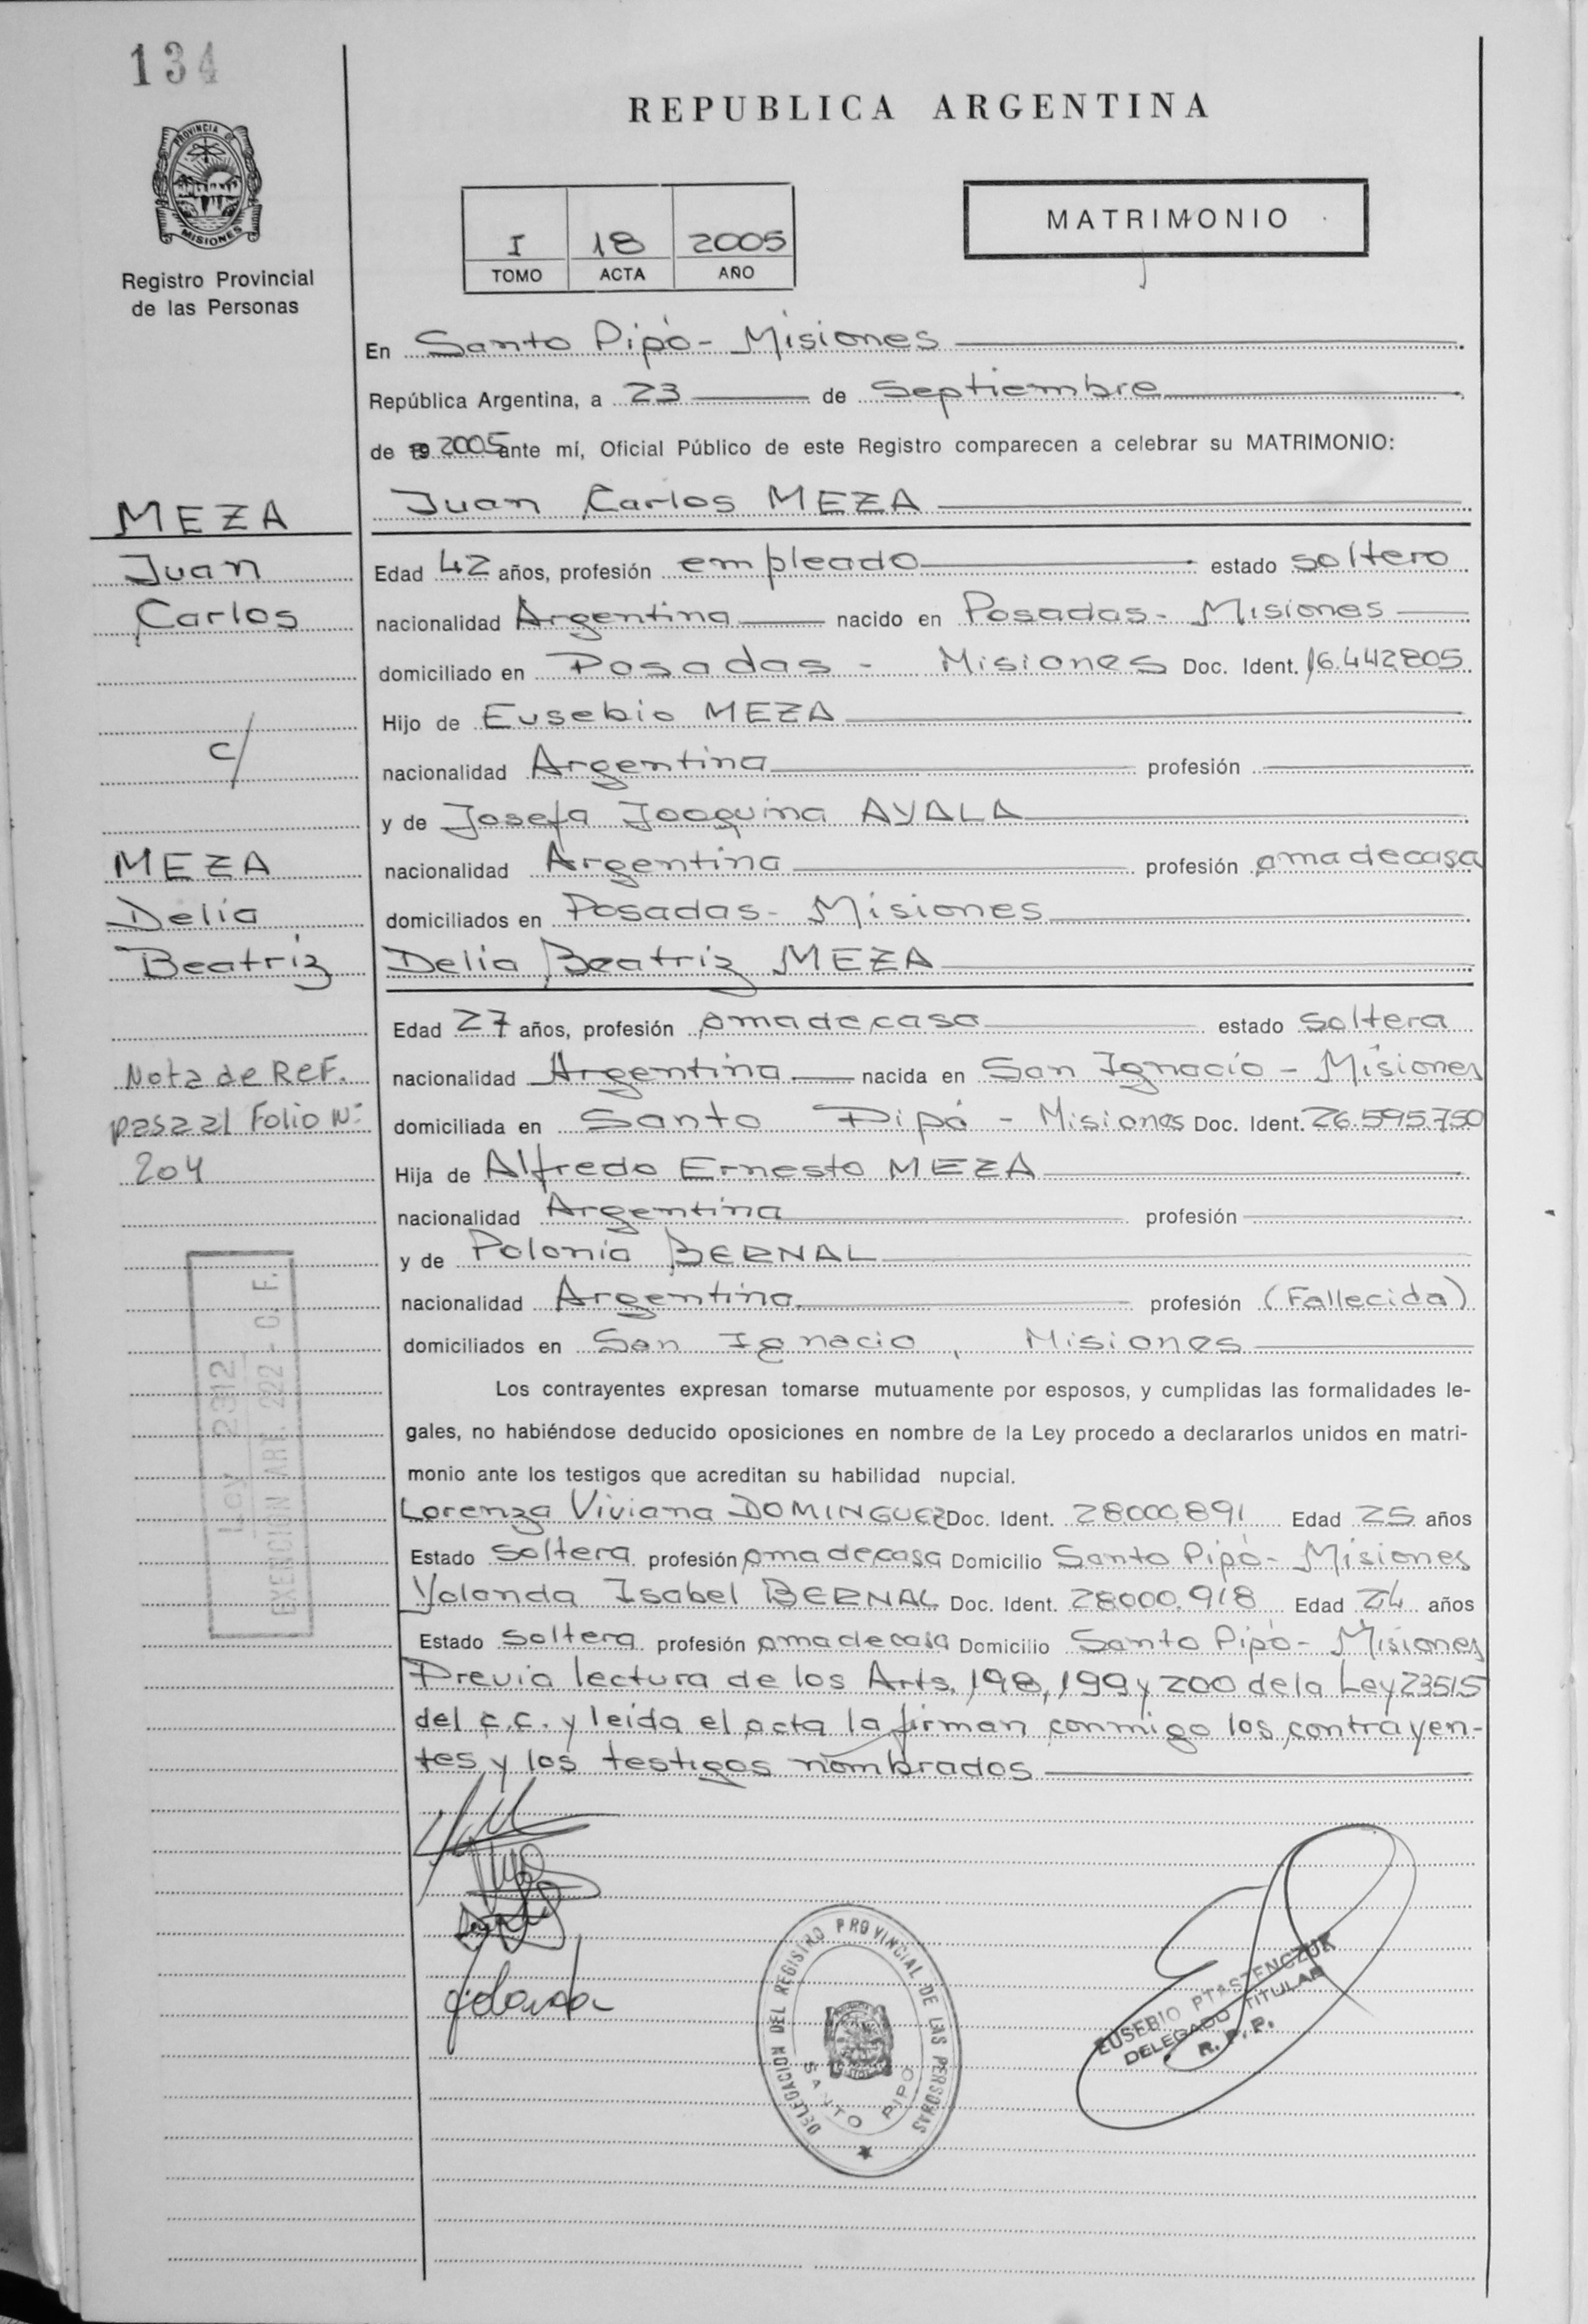 134
REPUBLICA ARGENTINA
PROVINCIA DE
MISIONES
Registro Provincial
de las Personas
I 18 2005
TOMO ACTA AÑO
MATRIMONIO
En Santo Pipó - Misiones
República Argentina, a 23 de Septiembre
de 19 2005 ante mí, Oficial Público de este Registro comparecen a celebrar su MATRIMONIO:
Juan Carlos MEZA
MEZA
Juan
Carlos
c/
MEZA
Delia
Beatriz
Nota de Ref.
pasa al Folio Nº
204
Ley 2312
EXENCION ART. 222 - C. F.
Edad 42 años, profesión empleado estado soltero
nacionalidad Argentina nacido en Posadas - Misiones
domiciliado en Posadas - Misiones Doc. Ident. 16.442805
Hijo de Eusebio MEZA
nacionalidad Argentina profesión
y de Josefa Joaquina AYALA
nacionalidad Argentina profesión ama de casa
domiciliados en Posadas - Misiones
Delia Beatriz MEZA
Edad 27 años, profesión ama de casa estado soltera
nacionalidad Argentina nacida en San Ignacio - Misiones
domiciliada en Santo Pipó - Misiones Doc. Ident. 26.595.750
Hija de Alfredo Ernesto MEZA
nacionalidad Argentina profesión
y de Polonia BERNAL
nacionalidad Argentina profesión (Fallecida)
domiciliados en San Ignacio, Misiones
Los contrayentes expresan tomarse mutuamente por esposos, y cumplidas las formalidades le-
gales, no habiéndose deducido oposiciones en nombre de la Ley procedo a declararlos unidos en matri-
monio ante los testigos que acreditan su habilidad nupcial.
Lorenza Viviana DOMINGUEZ Doc. Ident. 28000.891 Edad 25 años
Estado soltera profesión ama de casa Domicilio Santo Pipó - Misiones
Yolanda Isabel BERNAL Doc. Ident. 28000.918 Edad 24 años
Estado soltera profesión ama de casa Domicilio Santo Pipó - Misiones
Previa lectura de los Arts. 198, 199 y 200 de la Ley 23515
del c.c. y leida el acta la firman conmigo los contrayen-
tes y los testigos nombrados
Yolanda
DELEGACION DEL REGISTRO PROVINCIAL DE LAS PERSONAS
SANTO PIPO
EUSEBIO PTASZENCZUK
DELEGADO TITULAR
R. P. P.